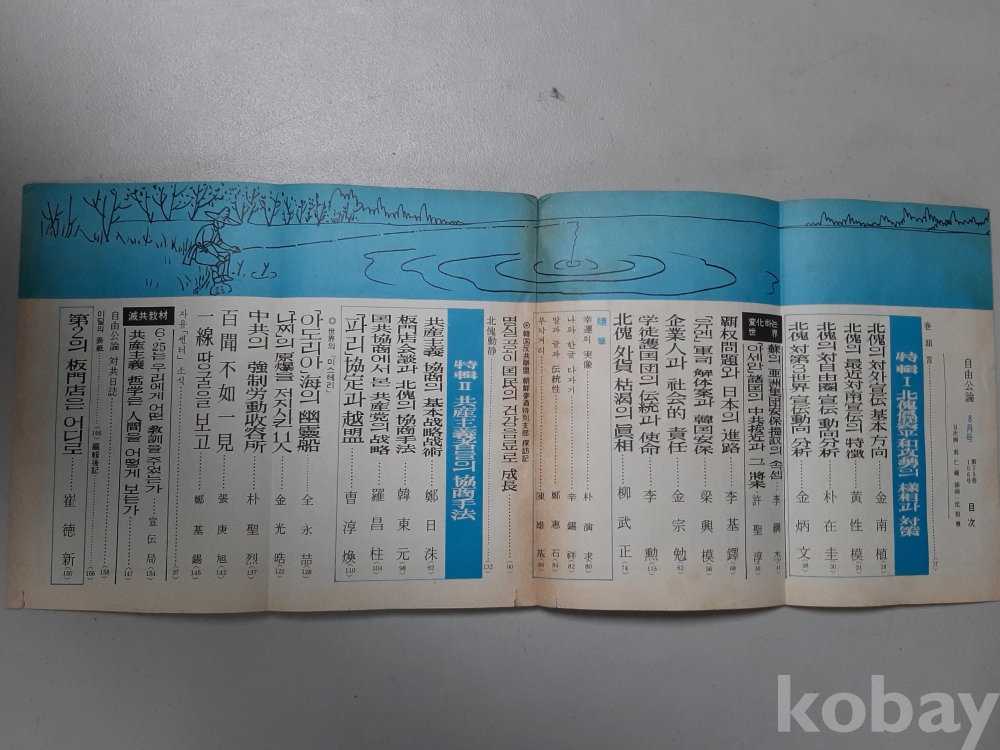 自由公論 8月号 目次
卷頭言
特輯Ⅰ 北傀偽装平和攻勢의 様相과 対策
北傀의 対外宣伝 基本 方向 金南植
北傀의 最近対南宣伝의 特徴 黃性模
北傀의 対自由圈 宣伝 動向分析 朴在圭
北傀 対第3世界 宣伝動向 分析 金炳文
変化하는 世界
蘇의 亞洲集団安保提議의 속셈
아세안 諸国의 中共接近과 그 將來 許聖淳
覇权問題와 日本의 進路 李基鐸
「유엔」軍司 解体案과 韓国安保 梁興模
企業人과 社会的 責任 金宗勉
学徒護国団의 伝統과 使命 李勲
北傀 外貨 枯渴의 眞相 柳武正 (74)
随筆
幸運의 実像 朴演求 (80)
나와 한글 타자기 辛錫祥 (82)
말과 글과 伝統性 鄭惠石
푸닥거리 陳雄基
◎韓国反共聯盟 朝鮮麥酒特別支部 探訪記
명실공히 国民의 건강음료로 成長 (90)
北傀動静 (132)
特輯Ⅱ 共産主義者들의 協商手法
共産主義 協商의 基本战略战術 鄭日洙 (92)
板門店会談과 北傀의 協商手法 韓東元 (98)
国共協商에서 본 共産党의 战略 羅昌柱 (104)
「파리」協定과 越盟 曺淳煥 (110)
◎世界의「미스테리」
아도리아 海의 幽靈船 全永喆 (128)
나찌의 原爆을 저지시킨 11人 金光晧 (122)
中共의 強制労動収容所 朴聖烈 (137)
百聞不如一見 張庚旭 (142)
一線 땅굴을 보고 鄭基錫 (145)
자유「센터」소식
滅共教材
6・25는 우리에게 어떤 教訓을 주었는가 宣伝局 (154)
共産主義 哲学은 人間을 어떻게 보는가 (147)
自由公論 対共日誌 (158)
이달의 表紙 (166) 編輯後記 (166)
第2의 板門店은 어디로 崔徳新 (150)
kobay